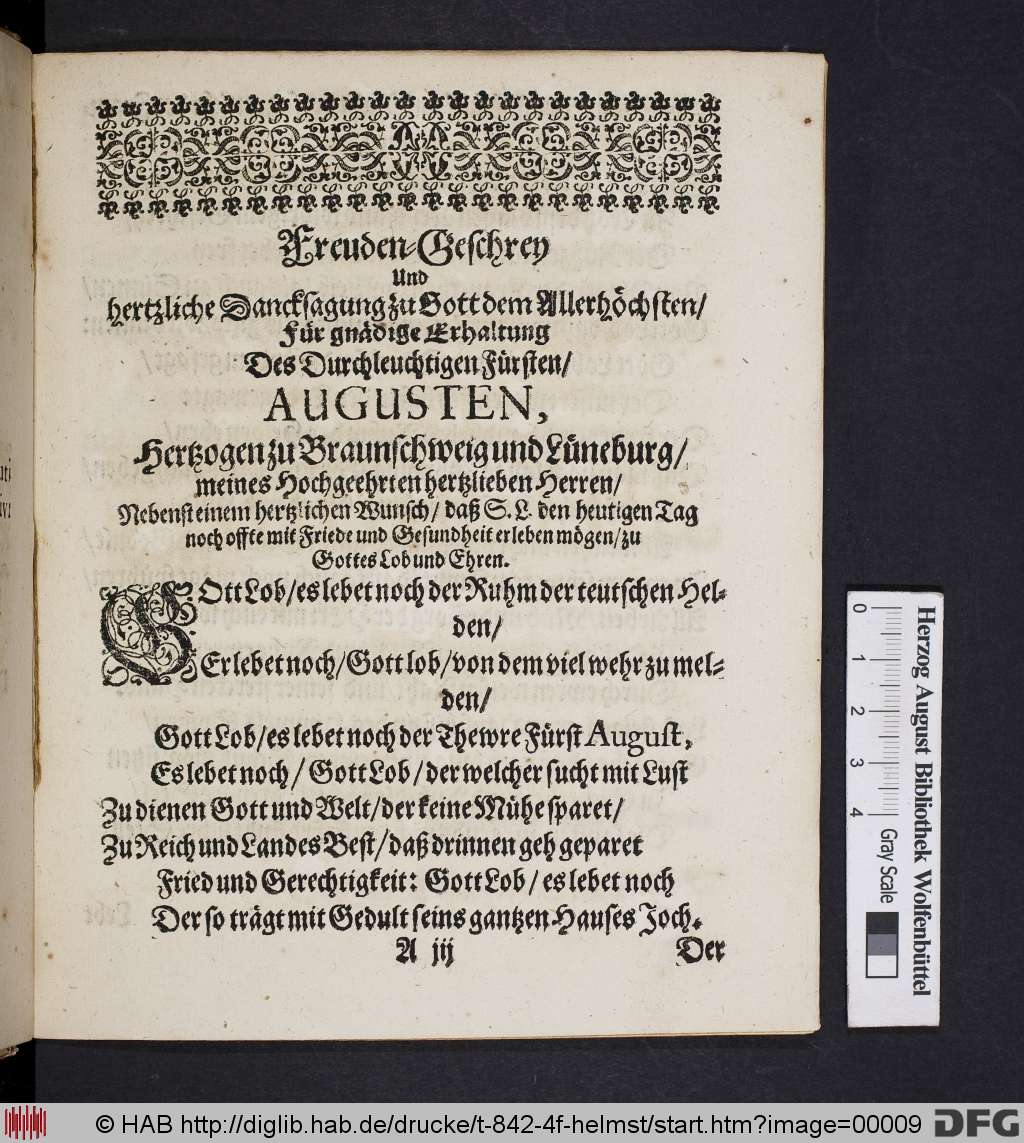 Freuden-Geschrey
Und
hertzliche Dancksagung zu Gott dem Allerhöchsten/
Für gnädige Erhaltung
Des Durchleuchtigen Fürsten/
AUGUSTEN,
Hertzogen zu Braunschweig und Lüneburg/
meines Hochgeehrten hertzlieben Herren/
Nebenst einem hertzlichen Wunsch/ daß S. L. den heutigen Tag
noch offte mit Friede und Gesundheit erleben mögen/ zu
Gottes Lob und Ehren.
GOtt Lob/ es lebet noch der Ruhm der teutschen Hel-
den/
Er lebet noch/ Gott lob/ von dem viel wehr zu mel-
den/
Gott Lob/ es lebet noch der Thewre Fürst August,
Es lebet noch/ Gott Lob/ der welcher sucht mit Lust
Zu dienen Gott und Welt/ der keine Mühe sparet/
Zu Reich und Landes Best/ daß drinnen geh geparet
Fried und Gerechtigkeit: Gott Lob/ es lebet noch
Der so trägt mit Gedult seins gantzen Hauses Joch.
A iij
Der
0 1 2 3 4
Herzog August Bibliothek Wolfenbüttel
Gray Scale
© HAB http://diglib.hab.de/drucke/t-842-4f-helmst/start.htm?image=00009
DFG